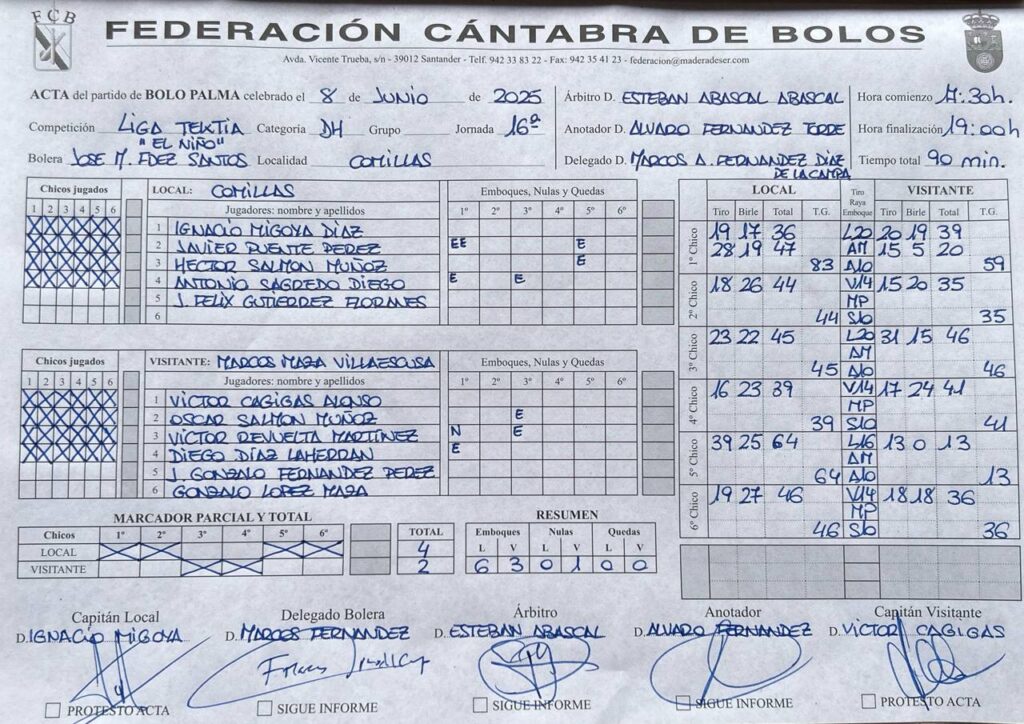 FCB
FEDERACIÓN CÁNTABRA DE BOLOS
Avda. Vicente Trueba, s/n - 39012 Santander - Telf. 942 33 83 22 - Fax: 942 35 41 23 - federacion@maderadeser.com
ACTA del partido de BOLO PALMA celebrado el 8 de JUNIO de 2025
Árbitro D. ESTEBAN ABASCAL ABASCAL
Hora comienzo 17:30h.
Competición LIGA TEXTIA Categoría DH Grupo Jornada 16ª
Anotador D. ALVARO FERNANDEZ TORRE
Hora finalización 19:00h
"EL NIÑO"
Bolera JOSE M. FDEZ SANTOS Localidad COMILLAS
Delegado D. MARCOS A. FERNANDEZ DIAZ
DE LA CAMPA
Tiempo total 90 min.
Chicos jugados
1 2 3 4 5 6
LOCAL: COMILLAS
Emboques, Nulas y Quedas
Jugadores: nombre y apellidos 1º 2º 3º 4º 5º 6º
1 IGNACIO MIGOYA DIAZ
2 JAVIER PUENTE PEREZ EE E
3 HECTOR SALMON MUÑOZ E
4 ANTONIO SAGREDO DIEGO E E
5 J. FELIX GUTIERREZ FLORANES
6
Chicos jugados
1 2 3 4 5 6
VISITANTE: MARCOS MAZA VILLAESCUSA
Emboques, Nulas y Quedas
Jugadores: nombre y apellidos 1º 2º 3º 4º 5º 6º
1 VICTOR CAGIGAS ALONSO
2 OSCAR SALMON MUÑOZ E
3 VICTOR REVUELTA MARTINEZ N E
4 DIEGO DÍAZ LAHERRAN E
5 J. GONZALO FERNANDEZ PEREZ
6 GONZALO LOPEZ MAZA
LOCAL Tiro Raya Emboque VISITANTE
Tiro Birle Total T.G. Tiro Birle Total T.G.
1º Chico 19 17 36 L20 20 19 39
28 19 47 AM 15 5 20
83 A10 59
2º Chico 18 26 44 V14 15 20 35
MP
44 S10 35
3º Chico 23 22 45 L20 31 15 46
AM
45 A10 46
4º Chico 16 23 39 V14 17 24 41
MP
39 S10 41
5º Chico 39 25 64 L16 13 0 13
AM
64 A10 13
6º Chico 19 27 46 V14 18 18 36
MP
46 S10 36
MARCADOR PARCIAL Y TOTAL
Chicos 1º 2º 3º 4º 5º 6º TOTAL
LOCAL X X X X 4
VISITANTE X X 2
RESUMEN
Emboques Nulas Quedas
L V L V L V
6 3 0 1 0 0
Capitán Local
D. IGNACIO MIGOYA
Delegado Bolera
D. MARCOS FERNANDEZ
Árbitro
D. ESTEBAN ABASCAL
Anotador
D. ALVARO FERNANDEZ
Capitán Visitante
D. VICTOR CAGIGAS
PROTESTO ACTA
SIGUE INFORME
SIGUE INFORME
SIGUE INFORME
PROTESTO ACTA